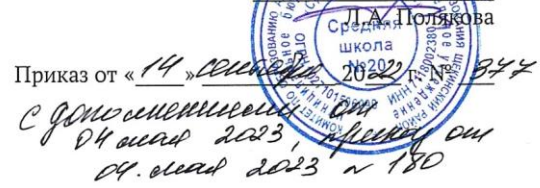 Л.А. Полякова
Средняя
школа
№20
Приказ от «14» сентября 2022 г. № 377
с дополнениями от
04 мая 2023, приказ от
04. мая 2023 № 180